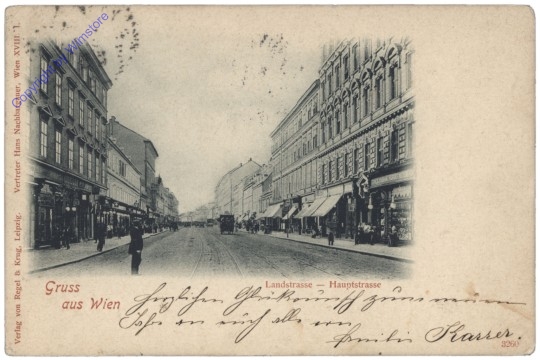 Verlag von Regel & Krug, Leipzig. Vertreter Hans Nachbargauer, Wien XVIII/1.
Copyright by Wimstore
Landstrasse — Hauptstrasse
Gruss
aus Wien
Herzlichen Glückwunsch zum neuen
Jahr an euch alle von
Emilie Karrer.
3260